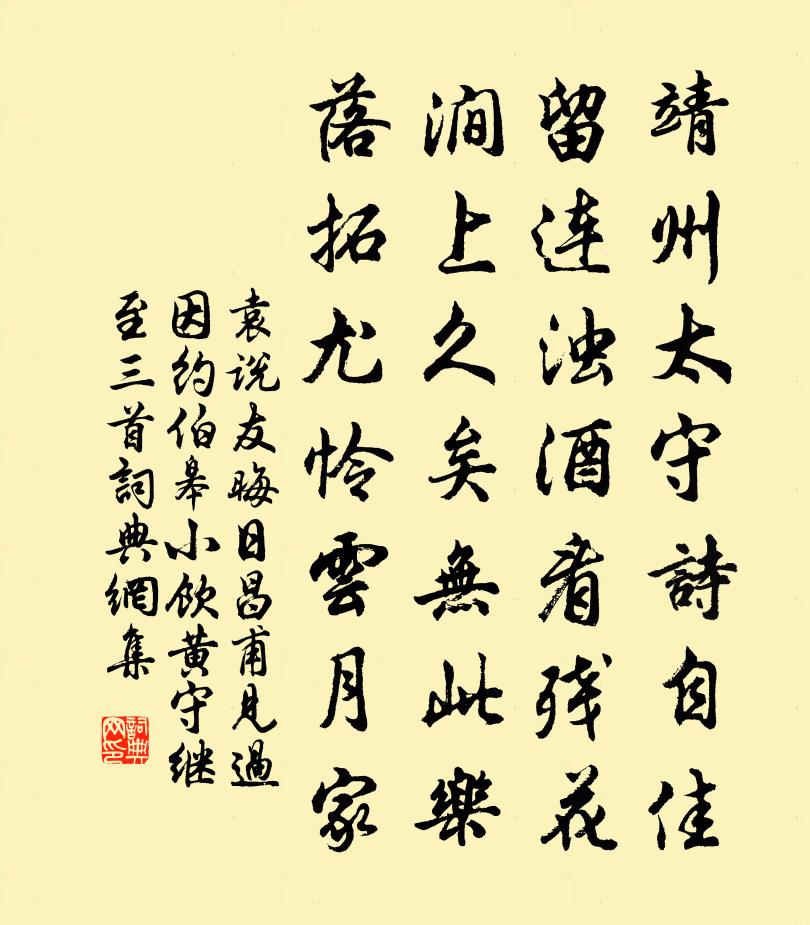 靖州太守詩自佳
留連浊酒看残花
澗上久矣無此樂
落拓尤怜雲月家
袁说友晦日昌甫見過
因约伯皋小飲黄守继
至三首詞典網集
詞典网印